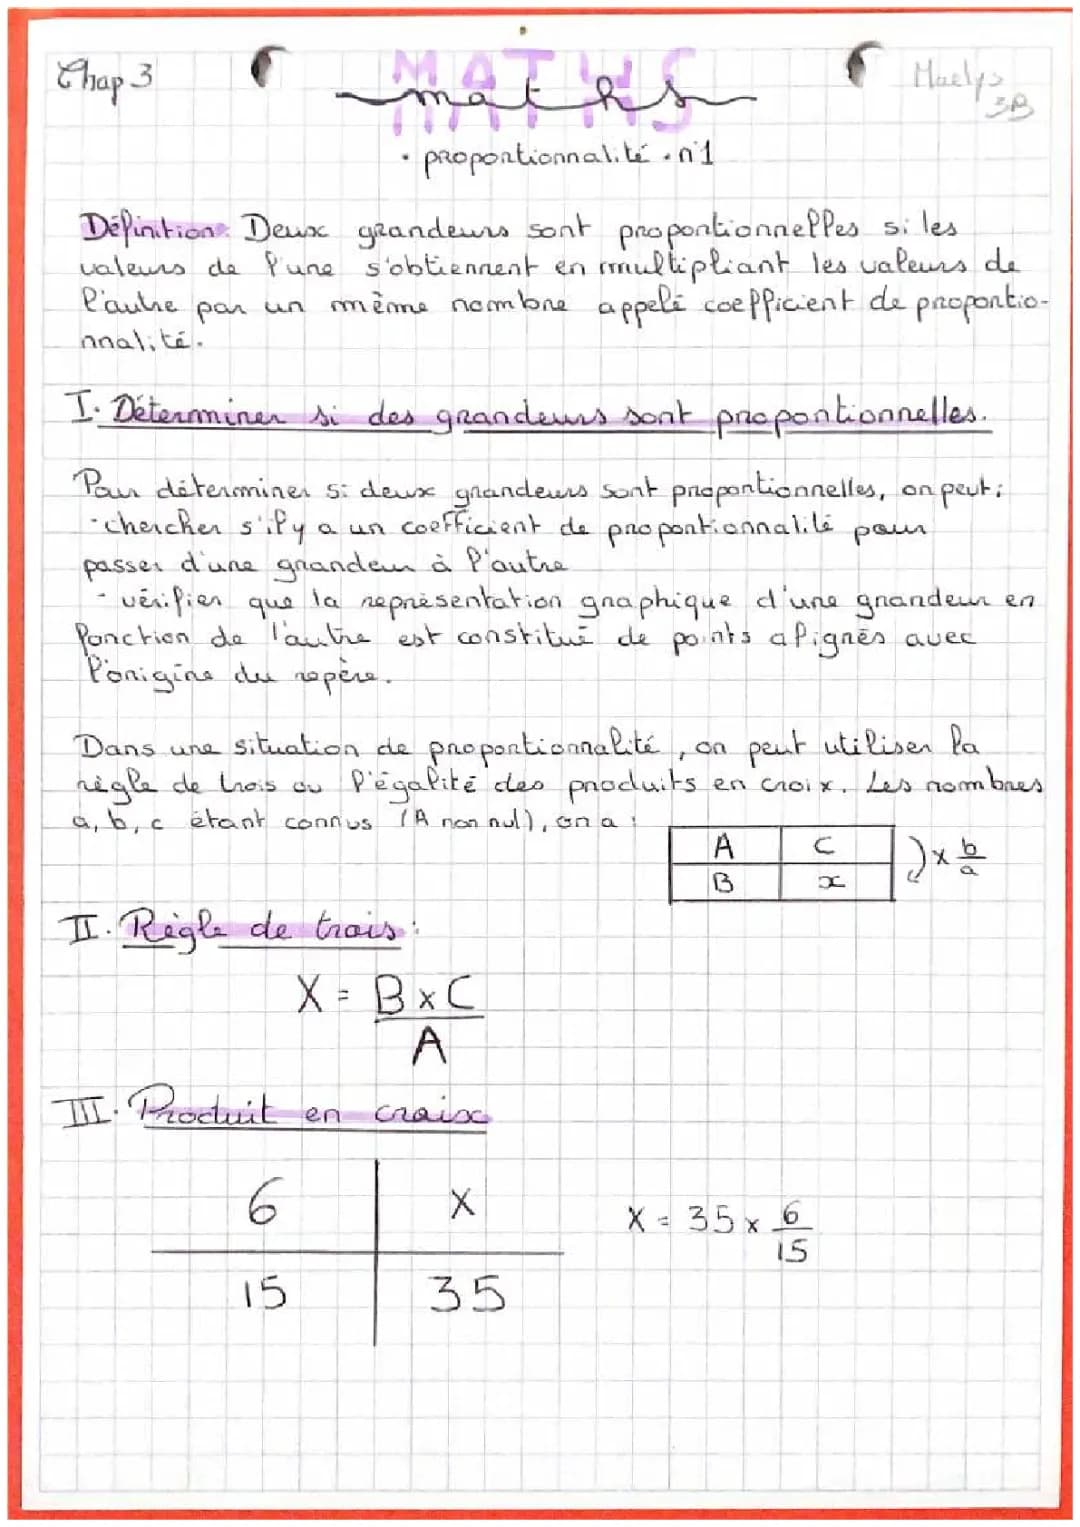 Chap 3
MATHS
maths
Maelys
3B
• proportionnalité • n°1
Définition: Deux grandeurs sont proportionnelles si les
valeurs de l'une s'obtiennent en multipliant les valeurs de
l'autre par un même nombre appelé coefficient de proportio-
nnalité.
I. Déterminer si des grandeurs sont proportionnelles.
Pour déterminer si deux grandeurs sont proportionnelles, on peut:
- chercher s'il y a un coefficient de proportionnalité pour
passer d'une grandeur à l'autre
- vérifier que la représentation graphique d'une grandeur en
fonction de l'autre est constitué de points alignés avec
l'origine du repère.
Dans une situation de proportionnalité, on peut utiliser la
règle de trois ou l'égalité des produits en croix. Les nombres
a, b, c étant connus (A non nul), on a :
A C
B x
× b/a
II. Règle de trois:
X = B × C
A
III. Produit en croix
6 X
15 35
X = 35 × 6/15